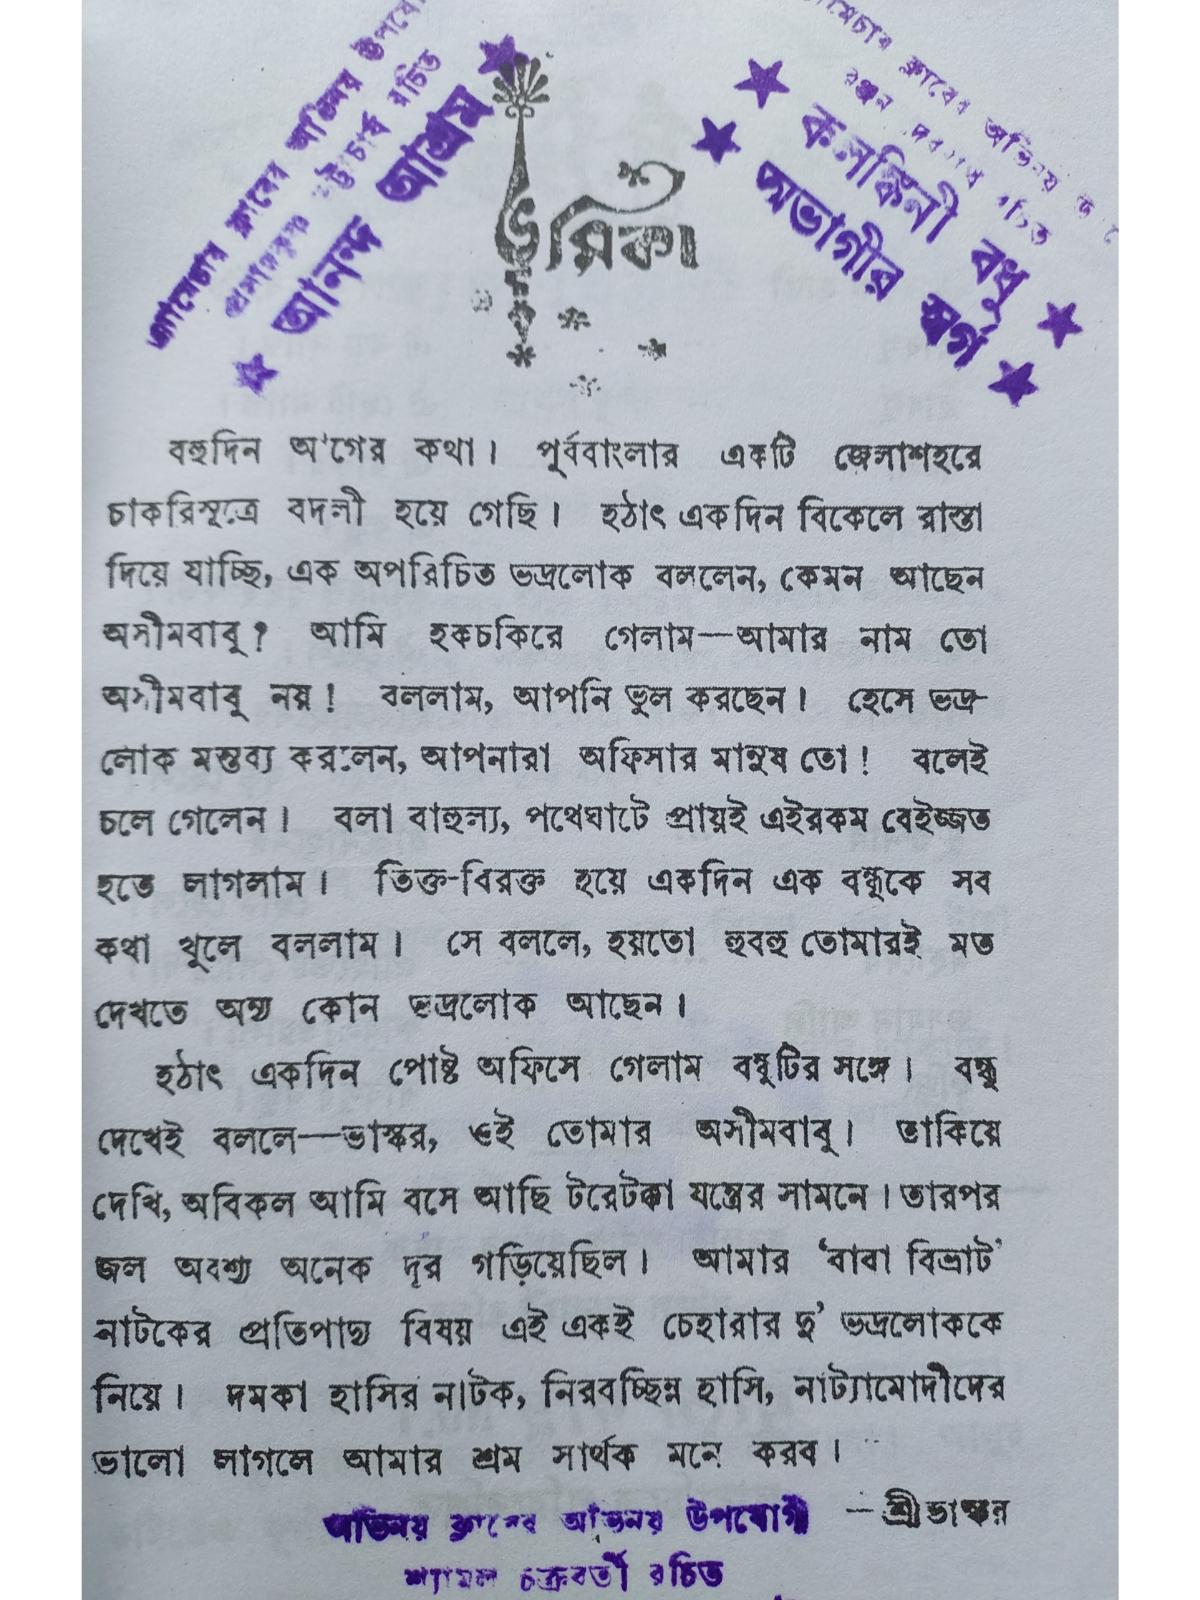 এ্যামেচার ক্লাবের অভিনয়
রচিত
আনন্দ আশ্রম
অভিনয়
রঞ্জন দেবনাথ রচিত
কলঙ্কিনী বধু
অভাগীর স্বর্গ
ভূমিকা
বহুদিন আগের কথা। পূর্ববাংলার একটি জেলাশহরে
চাকরিসূত্রে বদলী হয়ে গেছি। হঠাৎ একদিন বিকেলে রাস্তা
দিয়ে যাচ্ছি, এক অপরিচিত ভদ্রলোক বললেন, কেমন আছেন
অসীমবাবু? আমি হকচকিরে গেলাম—আমার নাম তো
অসীমবাবু নয়! বললাম, আপনি ভুল করছেন। হেসে ভদ্র-
লোক মন্তব্য করলেন, আপনারা অফিসার মানুষ তো! বলেই
চলে গেলেন। বলা বাহুল্য, পথেঘাটে প্রায়ই এইরকম বেইজ্জত
হতে লাগলাম। তিক্ত-বিরক্ত হয়ে একদিন এক বন্ধুকে সব
কথা খুলে বললাম। সে বললে, হয়তো হুবহু তোমারই মত
দেখতে অন্য কোন ভদ্রলোক আছেন।
হঠাৎ একদিন পোষ্ট অফিসে গেলাম বন্ধুটির সঙ্গে। বন্ধু
দেখেই বললে—ভাস্কর, ওই তোমার অসীমবাবু। তাকিয়ে
দেখি, অবিকল আমি বসে আছি টরেটক্কা যন্ত্রের সামনে। তারপর
জল অবশ্য অনেক দূর গড়িয়েছিল। আমার ‘বাবা বিভ্রাট’
নাটকের প্রতিপাদ্য বিষয় এই একই চেহারার দু’ ভদ্রলোককে
নিয়ে। দমকা হাসির নাটক, নিরবচ্ছিন্ন হাসি, নাট্যামোদীদের
ভালো লাগলে আমার শ্রম সার্থক মনে করব।
—শ্রীভাস্কর
অভিনয় ক্লাবের অভিনয় উপযোগী
শ্যামল চক্রবর্তী রচিত